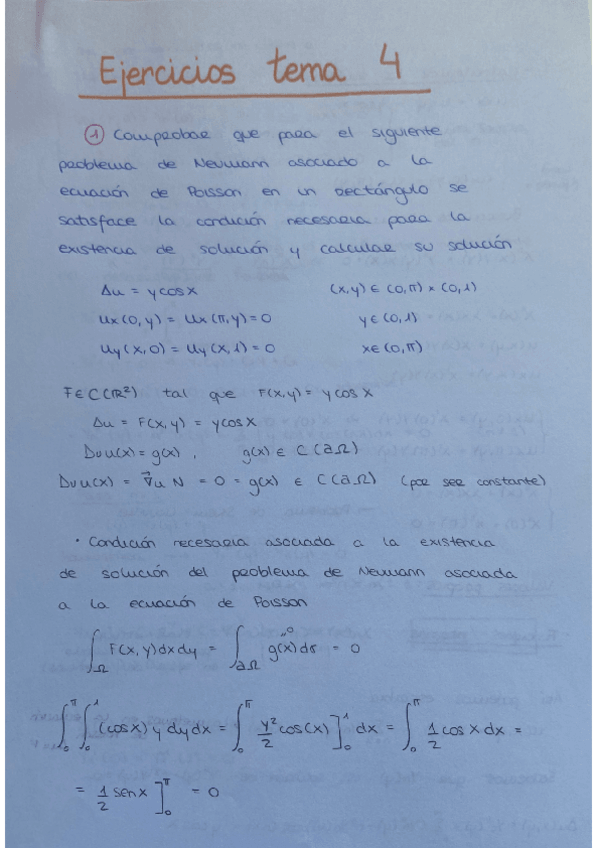 Ejercicios tema 4
① Comprobar que para el siguiente
problema de Neumann asociado a la
ecuación de Poisson en un rectángulo se
satisface la condición necesaria para la
existencia de solución y calcular su solución
Δu = y cos x (x,y) ∈ (0,π) × (0,1)
ux(0,y) = ux(π,y) = 0 y ∈ (0,1)
uy(x,0) = uy(x,1) = 0 x ∈ (0,π)
F ∈ C(ℝ²) tal que F(x,y) = y cos x
Δu = F(x,y) = y cos x
Dνu(x) = g(x), g(x) ∈ C(∂Ω)
Dνu(x) = ∇⃗u N = 0 = g(x) ∈ C(∂Ω) (por ser constante)
· Condición necesaria asociada a la existencia
de solución del problema de Neumann asociada
a la ecuación de Poisson
∫_Ω F(x,y)dxdy = ∫_∂Ω g(x)dσ = 0
∫₀^π ∫₀^1 (cos x) y dy dx = ∫₀^π y²/2 cos(x) ]₀^1 dx = ∫₀^π 1/2 cos x dx =
= 1/2 sen x ]₀^π = 0